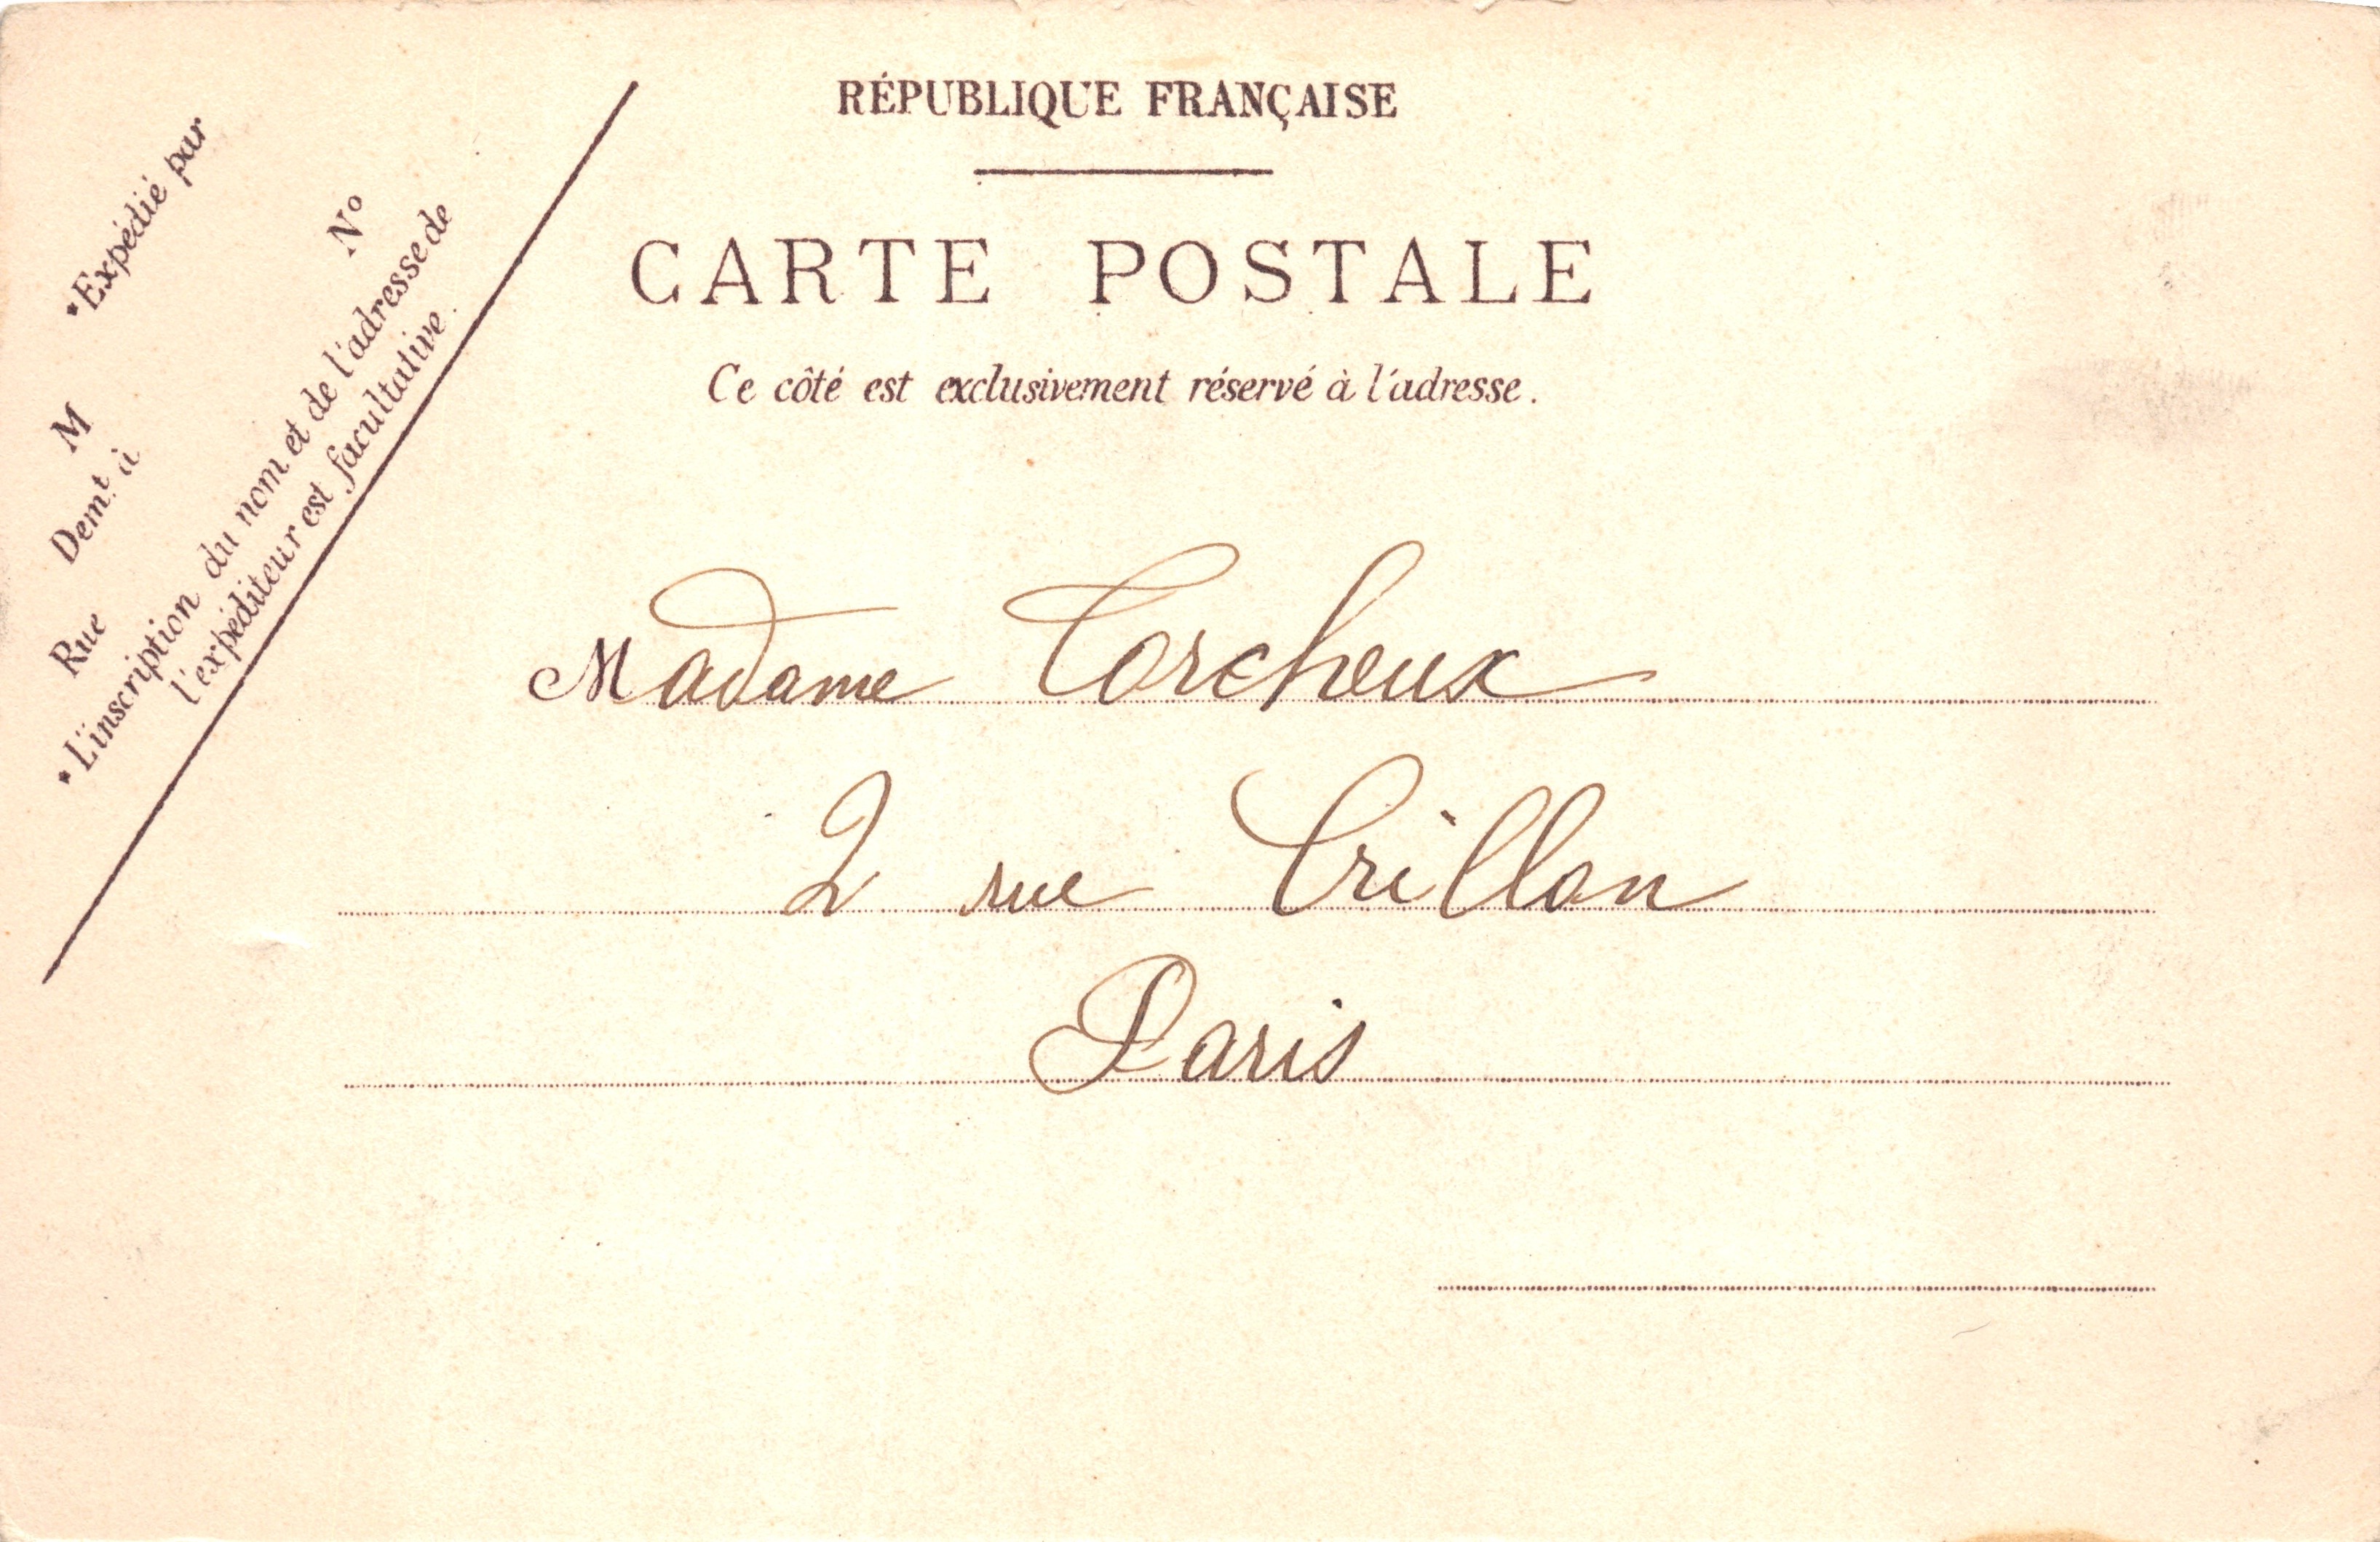 RÉPUBLIQUE FRANÇAISE
CARTE POSTALE
Ce côté est exclusivement réservé à l'adresse.
*Expédié par
M
Demt. à
Rue
No
*L'inscription du nom et de l'adresse de
l'expéditeur est facultative.
Madame Torcheux
2 rue Crillon
Paris